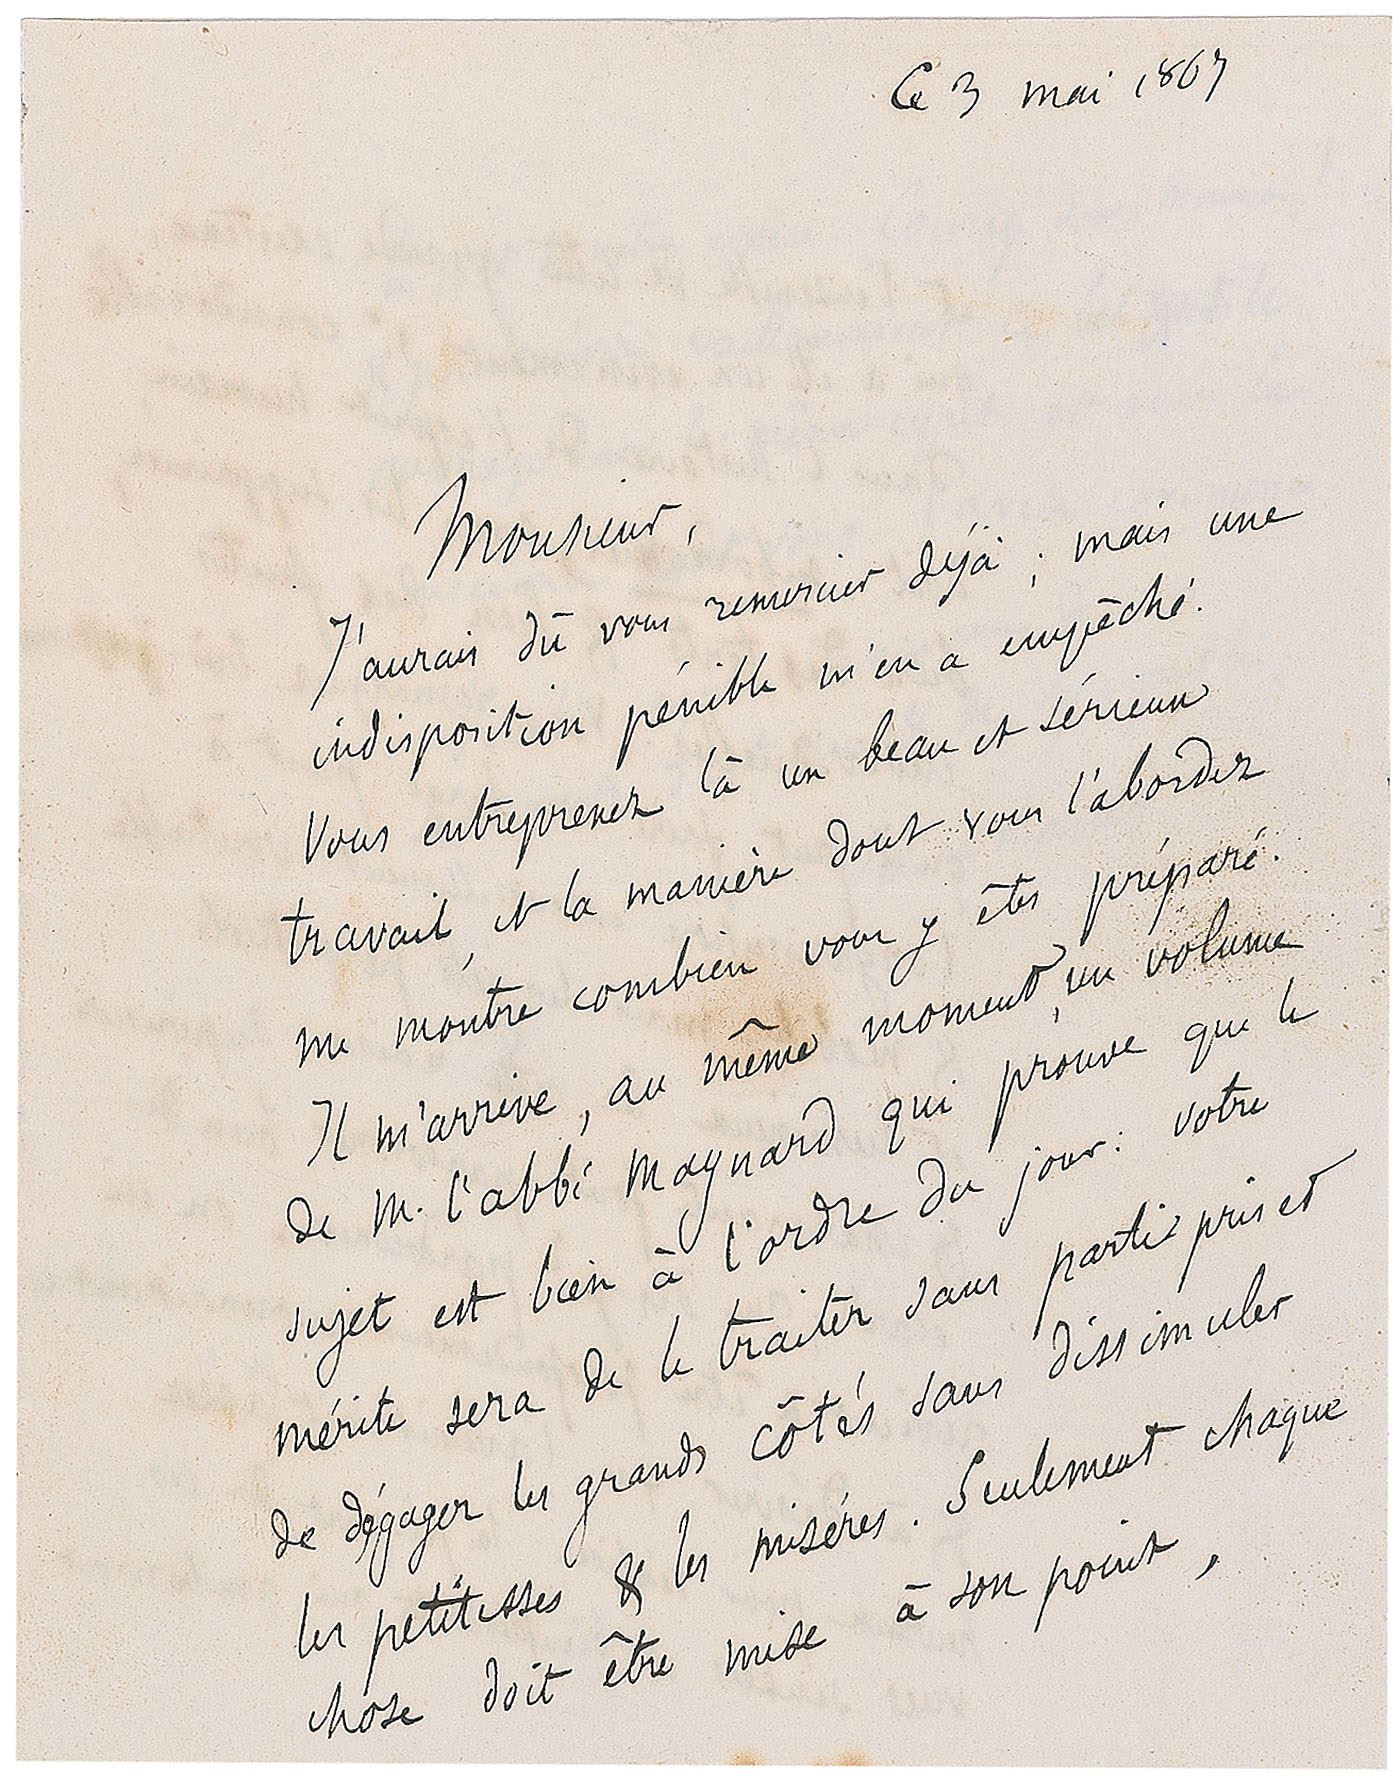 Ce 3 mai 1867
Monsieur,
J'aurais dû vous remercier déjà ; mais une
indisposition pénible m'en a empêché.
Vous entreprenez là un beau et sérieux
travail, et la manière dont vous l'abordez
me montre combien vous y êtes préparé.
Il m'arrive, au même moment, un volume
de M. l'abbé Maynard qui prouve que le
sujet est bien à l'ordre du jour : votre
mérite sera de le traiter sans parti pris et
de dégager les grands côtés sans dissimuler
les petitesses & les misères. Seulement chaque
chose doit être mise à son point,